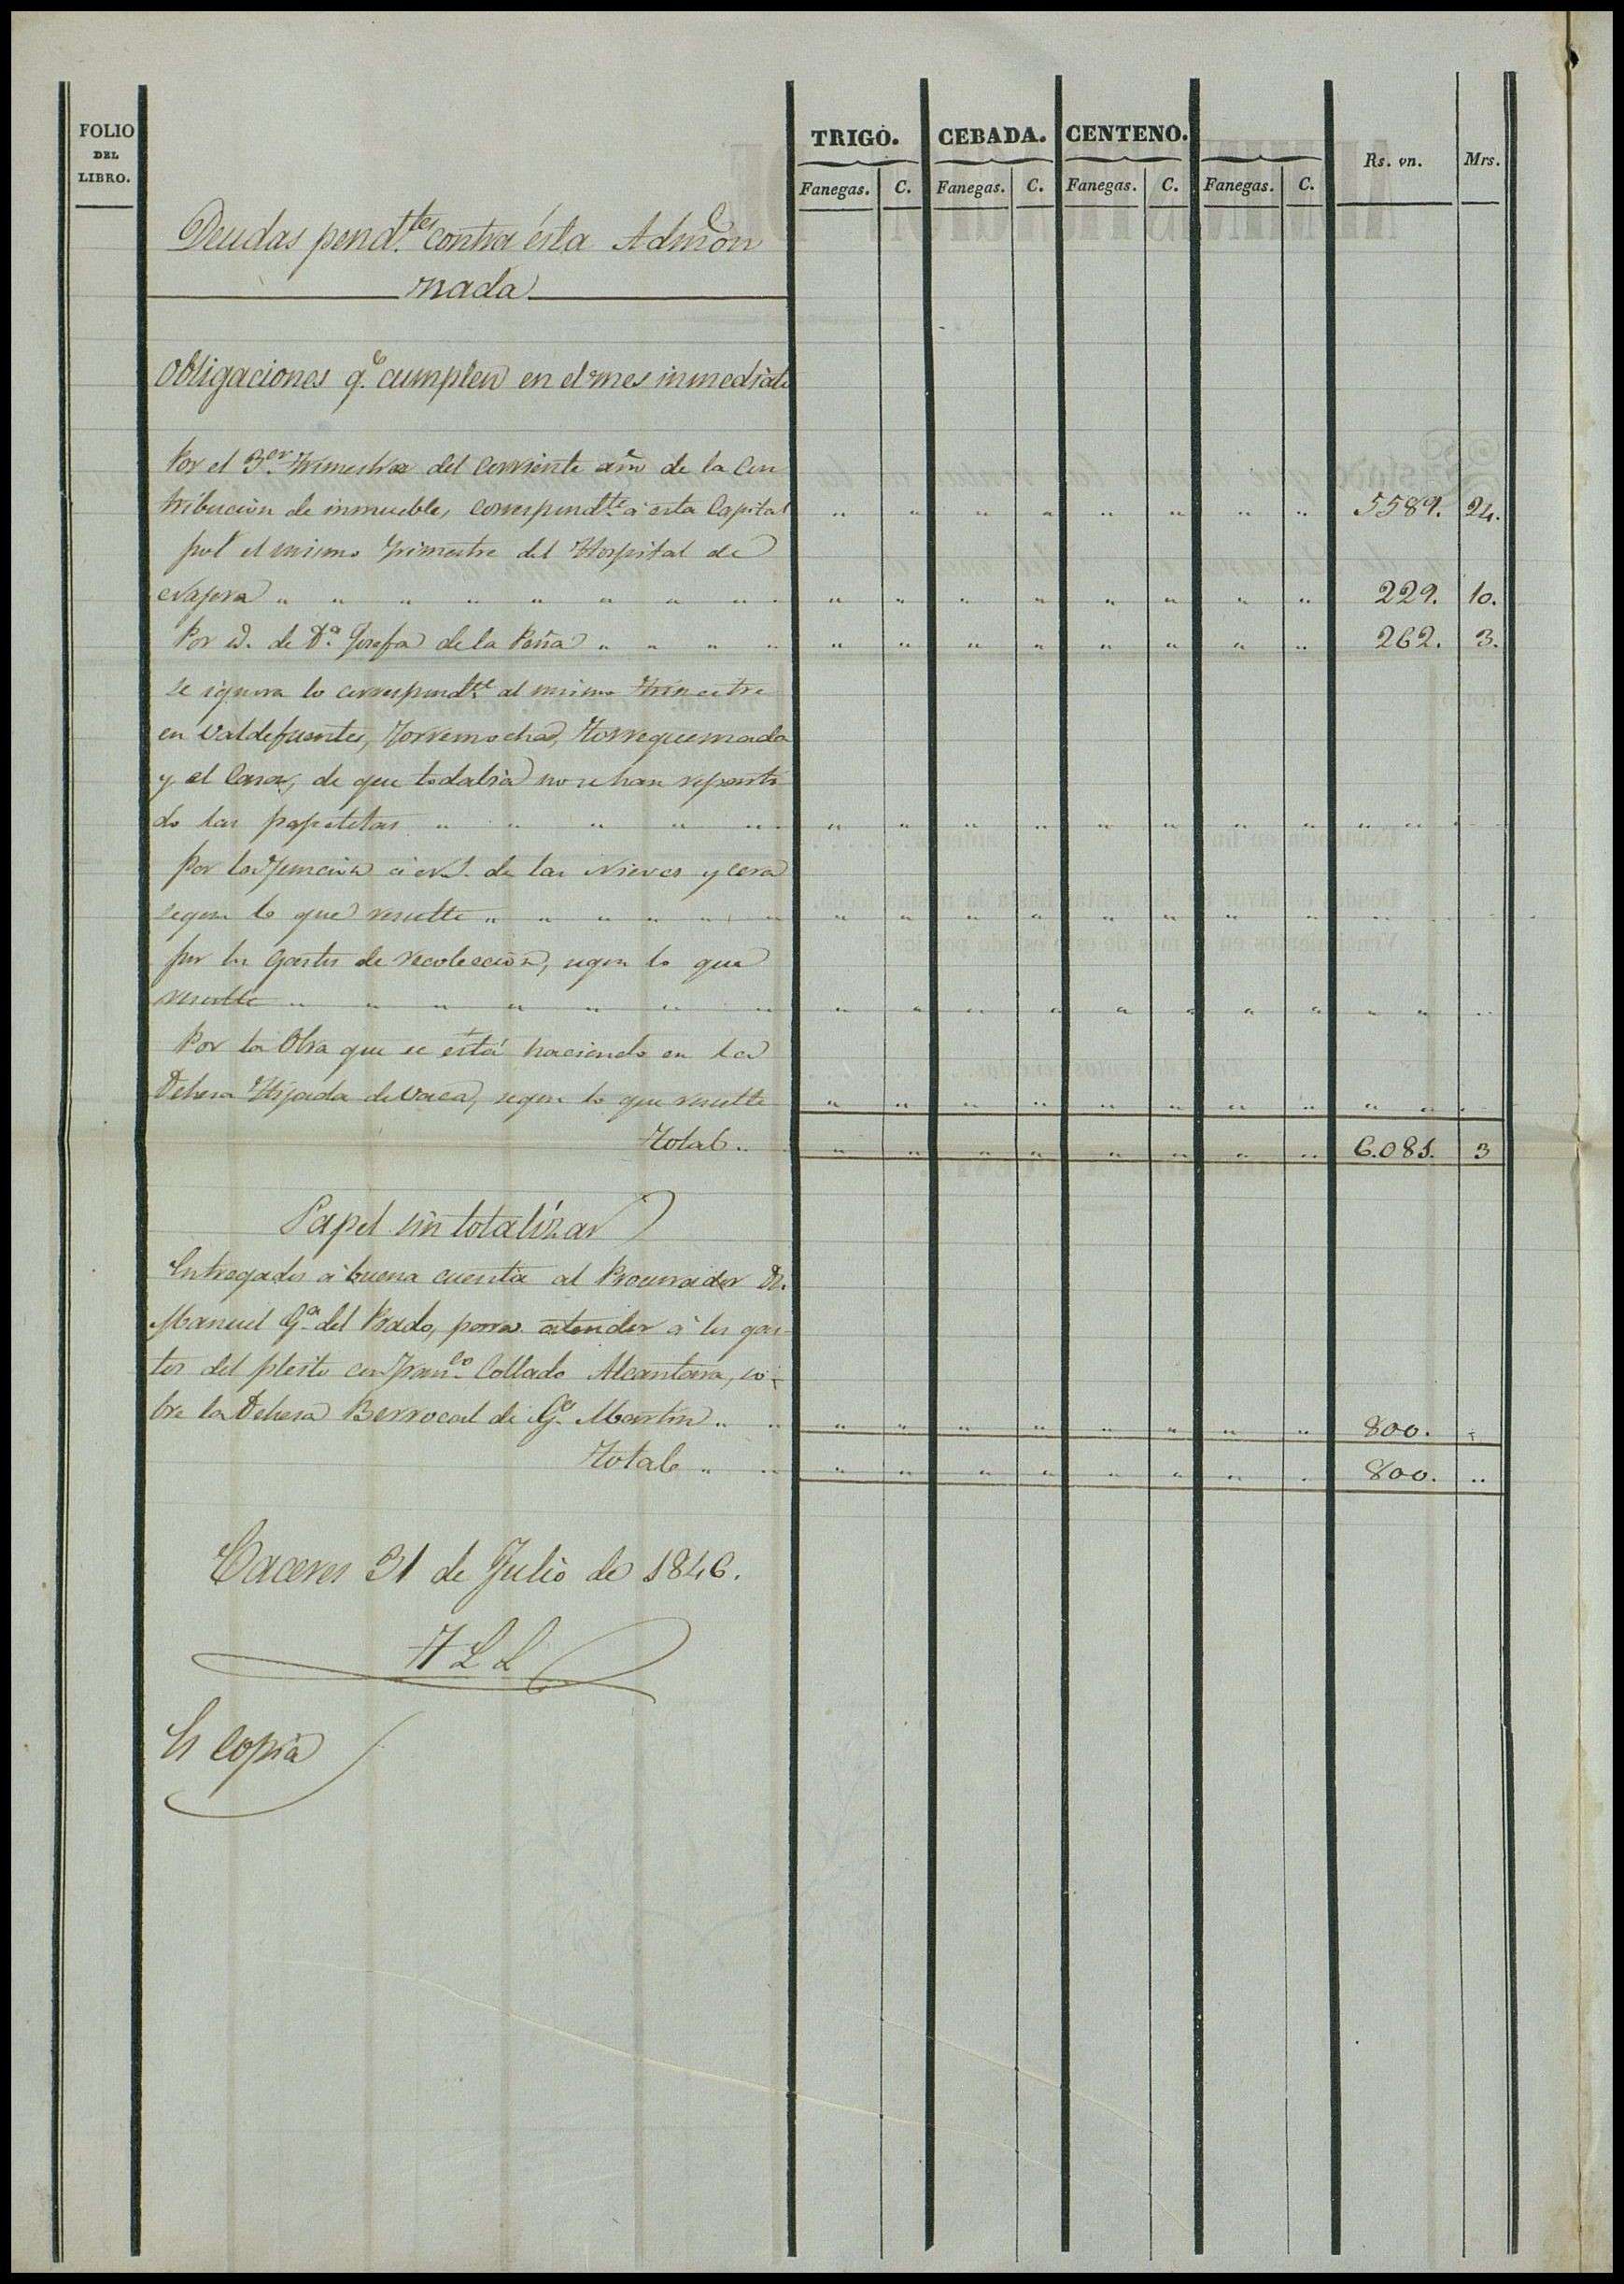 FOLIO
DEL
LIBRO.
TRIGO. CEBADA. CENTENO.
Rs. vn. Mrs.
Fanegas. C. Fanegas. C. Fanegas. C. Fanegas. C.
Deudas pend.tes contra ésta Admon
nada
Obligaciones q.e cumplen en el mes inmediato
Por el 3.er trimestre del corriente año de la Con
tribucion de inmueble, correspond.te á esta Capital " " " " " " " " 5589. 24.
por el mismo trimestre del Hospital de
" " " " " " " " " " " " " " " " 229. 10.
Por id. de D.ª Josefa de la Peña " " " " " " " " " " " " 262. 3.
se ignora lo correspond.te al mismo trimestre
en Valdefuentes, Torremocha, Torrequemada
y el Casar, de que todabia no se han reparti
do las papeletas " " " " " " " " " " " " " " "
por la funcion á N. S. de las Nieves y cera
segun lo que resulte " " " " " " " " " " " " " " "
por los gastos de recoleccion, segun lo que
resulte " " " " " " " " " " " " " " " " "
Por la Obra que se está haciendo en la
Dehesa Hijada de Vaca, segun lo que resulte " " " " " " " " " "
Total .. " " " " " " " " 6.081. 3
Papel sin totalizar
Entregados á buena cuenta al Procurador Dn.
Manuel G.ª del Prado, para atender á los gas-
tos del pleito con Fran.co Collado Alcantara, so-
bre la Dehesa Berrocal de G.ª Martin " " " " " " " " " " 800. "
Total " " " " " " " " " " 800. "
Caceres 31 de Julio de 1846.
H L L
Es copia